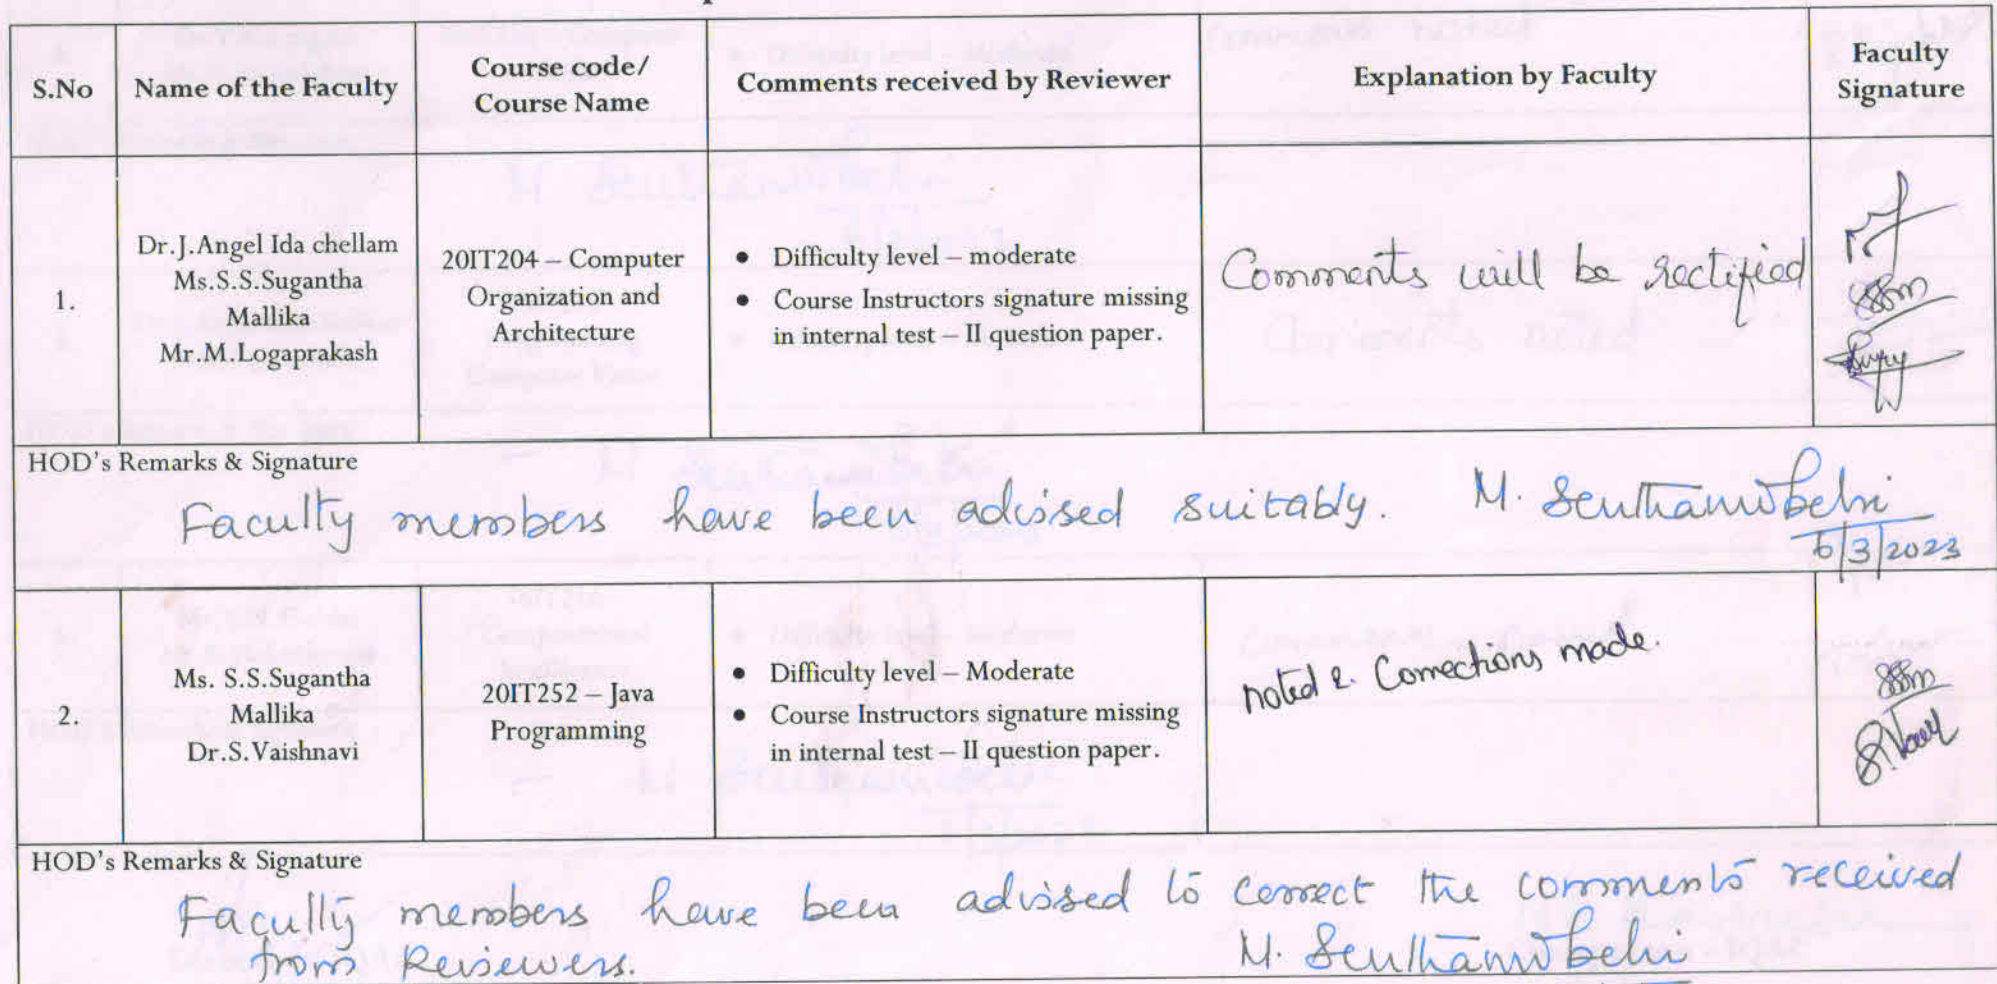 S.No Name of the Faculty Course code/ Course Name Comments received by Reviewer Explanation by Faculty Faculty Signature
1.
Dr.J.Angel Ida chellam
Ms.S.S.Sugantha
Mallika
Mr.M.Logaprakash
20IT204 – Computer
Organization and
Architecture
• Difficulty level – moderate
• Course Instructors signature missing
in internal test – II question paper.
Comments will be rectified
HOD's Remarks & Signature
Faculty members have been advised suitably. M.
6/3/2023
2.
Ms. S.S.Sugantha
Mallika
Dr.S.Vaishnavi
20IT252 – Java
Programming
• Difficulty level – Moderate
• Course Instructors signature missing
in internal test – II question paper.
noted & Corrections made.
HOD's Remarks & Signature
Faculty members have been advised to correct the comments received
from Reviewers. M.